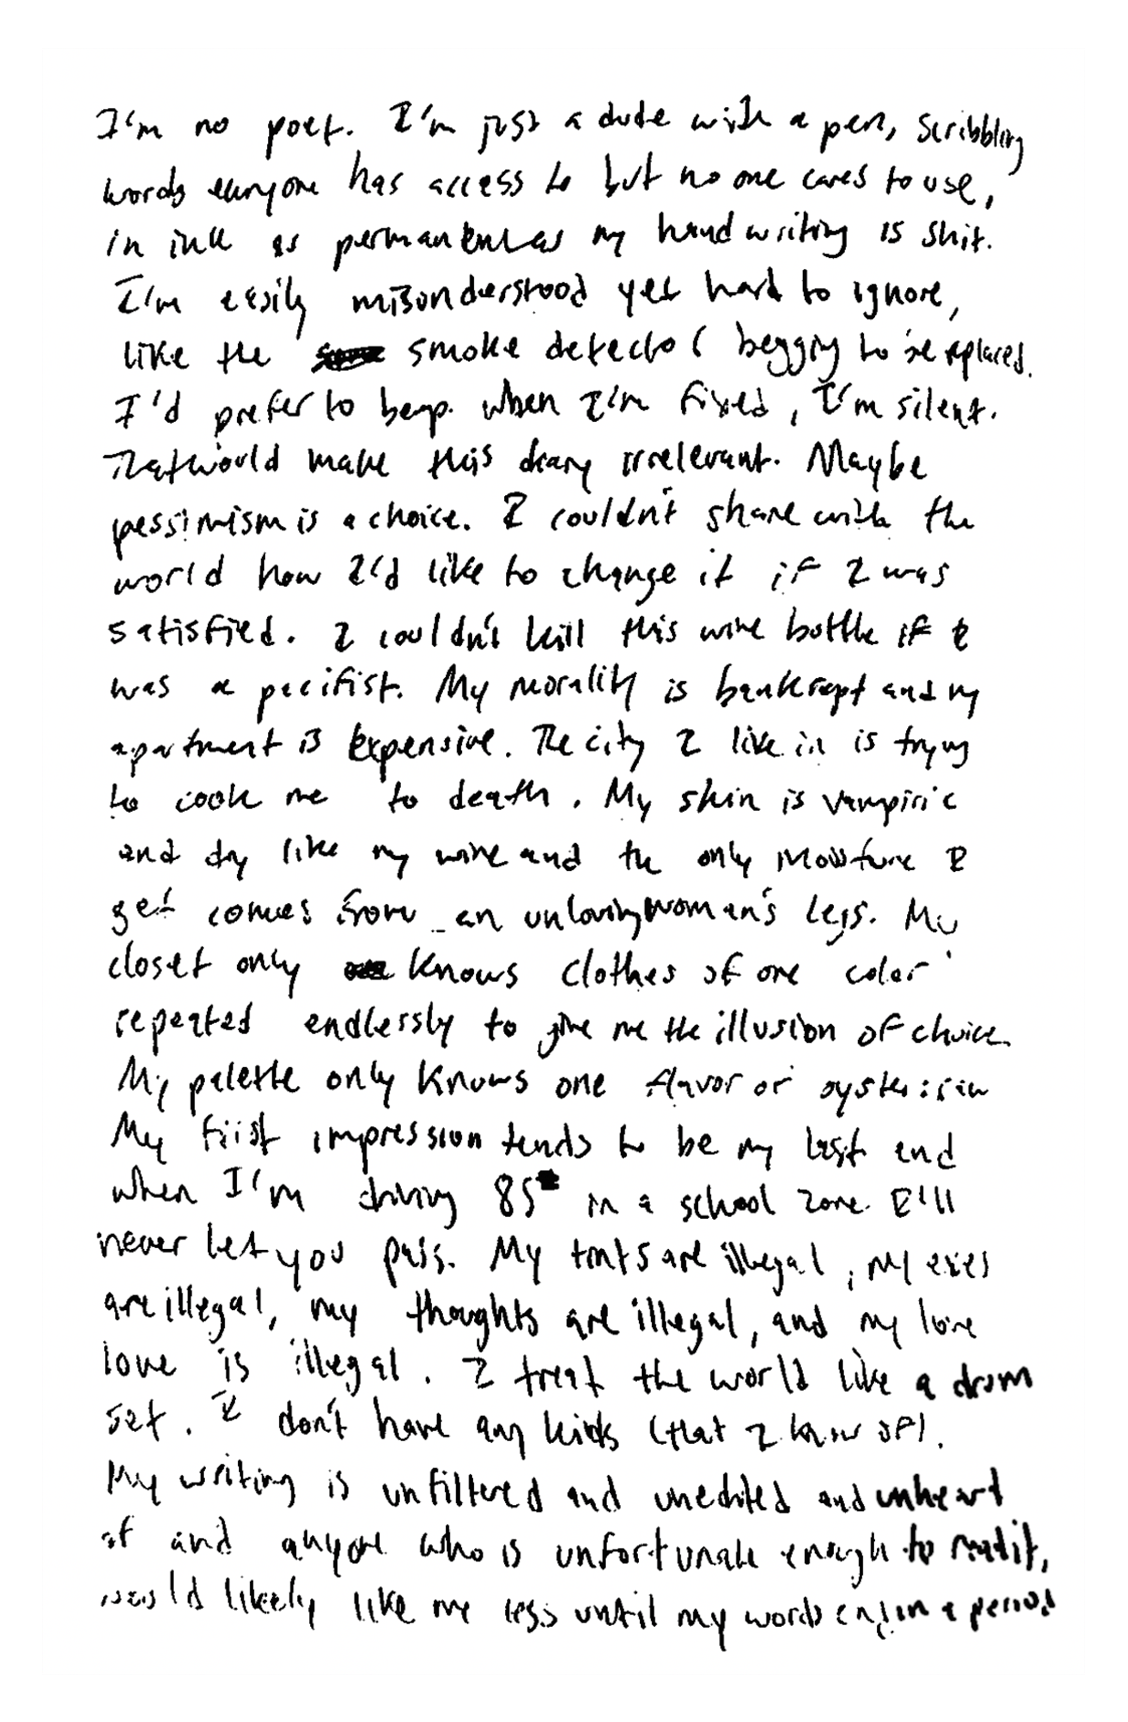 I'm no poet. I'm just a dude with a pen, scribbling
words everyone has access to but no one cares to use,
in ink as permanent as my handwriting is shit.
I'm easily misunderstood yet hard to ignore,
like the smoke detector begging to be replaced.
I'd prefer to beep. when I'm fixed, I'm silent.
That would make this diary irrelevant. Maybe
pessimism is a choice. I couldn't share with the
world how I'd like to change it if I was
satisfied. I couldn't kill this wine bottle if I
was a pacifist. My morality is bankrupt and my
apartment is expensive. The city I live in is trying
to cook me to death. My skin is vampiric
and dry like my wine and the only moisture I
get comes from an unloving woman's legs. My
closet only knows clothes of one color
repeated endlessly to give me the illusion of choice.
My palette only knows one flavor or oyster: raw
My first impression tends to be my last and
when I'm driving 85 in a school zone I'll
never let you pass. My tints are illegal, my exes
are illegal, my thoughts are illegal, and my love
love is illegal. I treat the world like a drum
set. I don't have any kids (that I know of).
My writing is unfiltered and unedited and unheard
of and anyone who is unfortunate enough to read it,
would likely like me less until my words end in a period